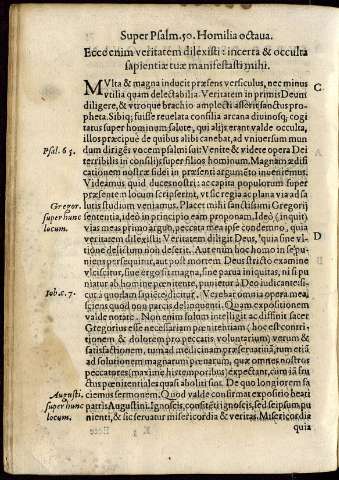 Super Psalm. 50. Homilia octaua.
Ecce enim veritatem dilexisti: incerta & occulta
sapientiæ tuæ manifestasti mihi.
MVlta & magna inducit præsens versiculus, nec minus
C
vtilia quam delectabilia. Veritatem in primis Deum
diligere, & vtroque brachio amplecti asserit sanctus pro-
pheta. Sibiq; fuisse reuelata consilia arcana diuinosq; cogi
tatus super hominum salute, qui
valde occulta,
illos præcipuè de quibus alibi canebat, ad vniuersum mun
Psal. 65.
dum dirigēs vocem psalmi sui: Venite & videte opera Dei
terribilis in consilijs super filios hominum. Magnam ædifi
cationem nostræ fidei in præsenti argumēto inuenimus.
Videamus quid
: ac capita populorum super
præsente
locum scripserint, vt sic regia ac plana via ad sa
Gregor.
lutis studium veniamus. Placet mihi sanctissimi Gregorij
super hunc
sententia, ideò in principio eam proponam. Ideò (inquit)
locum.
vias meas primo arguo, peccata mea ipse condemno, quia
veritatem dilexisti. Veritatem diligit Deus,
sine vl-
D
tione delictum non deserit. Aut enim hoc homo in se puniens
persequitur, aut post mortem Deus
stricto examine
vlciscitur, siue ergo sit magna, siue parua iniquitas, ni si pu
niatur ab homine pœnitente, punietur à Deo iudicante: si-
Iob. c. 7.
cut à quodam sapiēte dicitur. Verebar omnia opera mea,
sciens quod non parcis delinquenti. Quam expositionem
valde notate. Non enim solùm intelligit ac diffinit sacer
Gregorius esse necessariam pœnitentiam (hoc est contri-
tionem & dolorem pro peccatis voluntarium) verùm &
satisfactionem, tum ad medicinam præseruatiuā, tum etiā
ad solutionem magnatum pœnarum, quæ omnes nostros
peccatores (maximè his temporibus) expectant, cum iā fru
ctus pœnitentiales quasi aboliti sint. De quo longiorem fa
Augusti.
ciemus sermonem. Quod valde confirmat expositio beati
super hunc
patris Augustini. Ignoscis, consitēti ignoscis, sed seipsum pu
locum.
nienti, & sic seruatur misericordia & veritas. Misericordia
quia